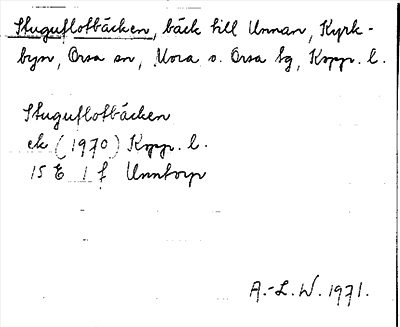 Stuguflotbäcken, bäck till Unnan, Kyrk-
byn, Orsa sn, Mora o. Orsa tg, Kopp. l.
Stuguflotbäcken
ek (1970) Kopp. l.
15 E 1 f Unntorp
A.-L. W. 1971.